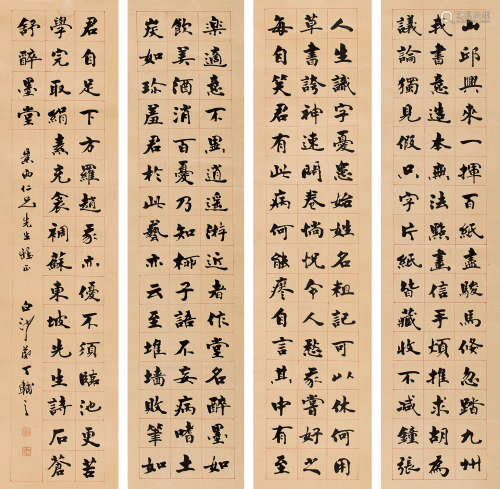 人生識字憂患始姓名粗記可以休何用
草書誇神速開卷惝怳令人愁我嘗好之
每自笑君有此病何能瘳自言其中有至
樂適意不異逍遙游近者作堂名醉墨如
飲美酒消百憂乃知柳子語不妄病嗜土
炭如珍羞君於此藝亦云至堆墻敗筆如
山邱興來一揮百紙盡駿馬倏忽踏九州
我書意造本無法點畫信手煩推求胡為
議論獨見假只字片紙皆藏收不減鍾張
君自足下方羅趙我亦優不須臨池更苦
學完取絹素充衾裯蘇東坡先生詩石蒼
舒醉墨堂
仁兄先生雅正
白沙